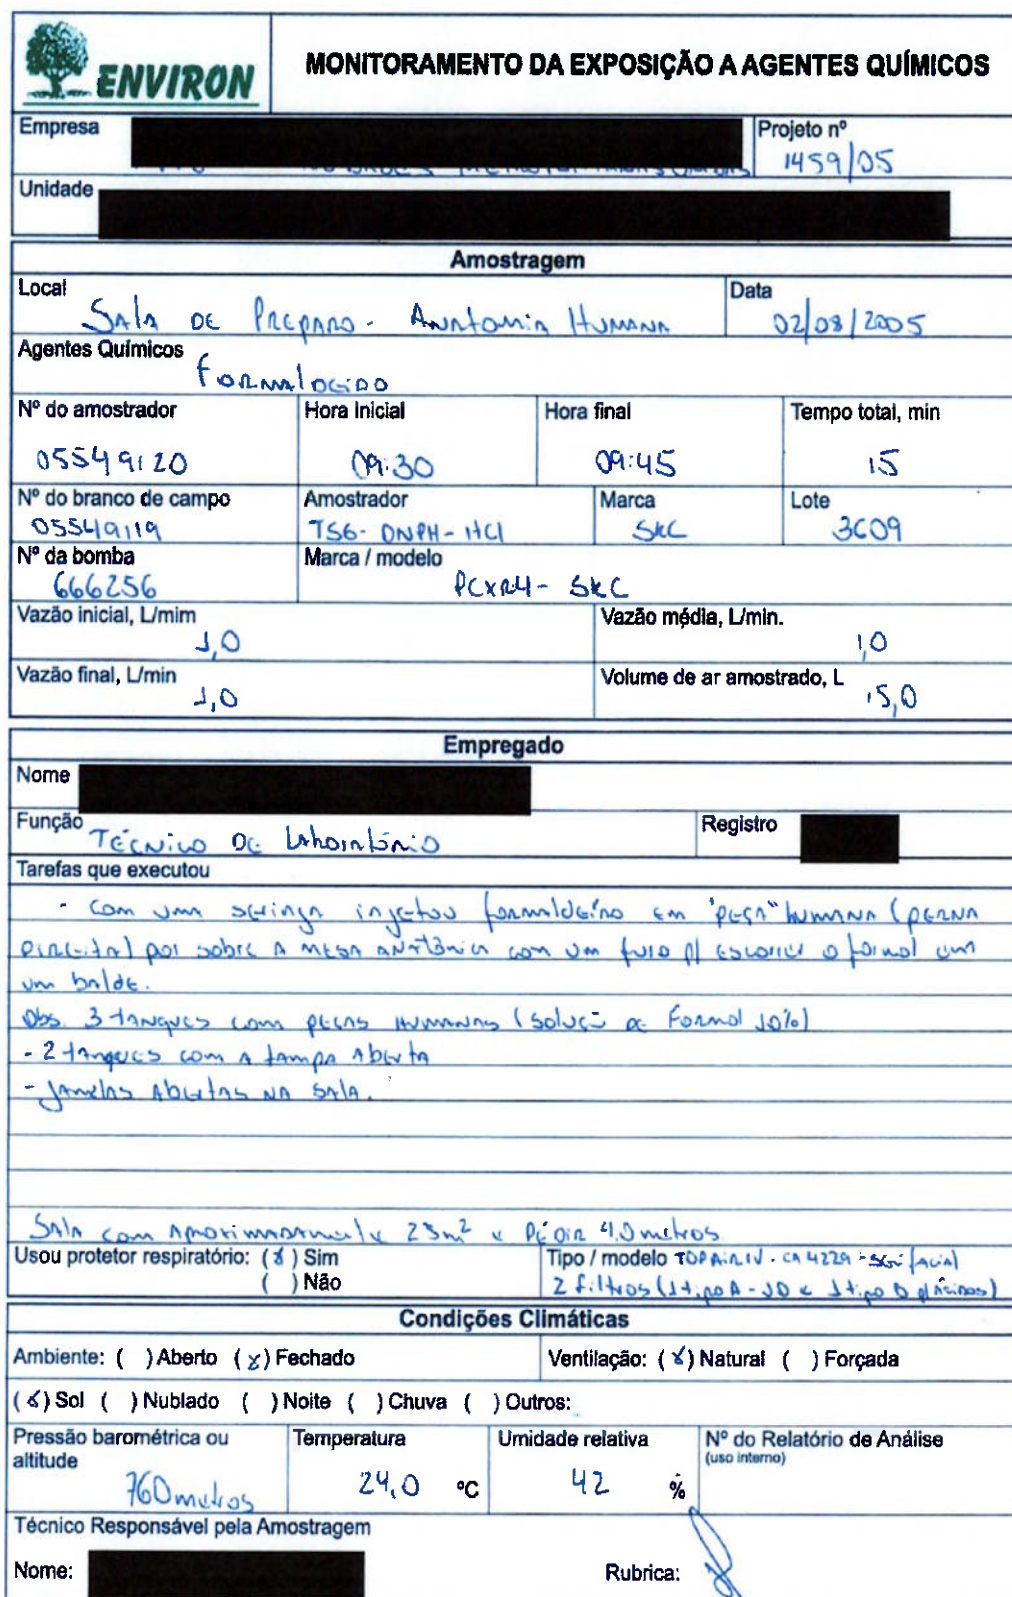 ENVIRON
MONITORAMENTO DA EXPOSIÇÃO A AGENTES QUÍMICOS
Empresa
Projeto nº
1459/05
Unidade
Amostragem
Local
Sala de Preparo - Anatomia Humana
Data
02/08/2005
Agentes Químicos
Formaldeído
Nº do amostrador
Hora Inicial
Hora final
Tempo total, min
05549120
09:30
09:45
15
Nº do branco de campo
Amostrador
Marca
Lote
05549119
TS6- DNPH-HCl
SKC
3609
Nº da bomba
Marca / modelo
666256
PCXR4- SKC
Vazão inicial, L/mim
1,0
Vazão média, L/min.
1,0
Vazão final, L/min
1,0
Volume de ar amostrado, L
15,0
Empregado
Nome
Função
Técnico de Laboratório
Registro
Tarefas que executou
- Com uma seringa injetou formaldeíno em "peça" humana (perna
direita) por sobre a mesa anatômica com um furo p/ escorrer o formol em
um balde.
Obs. 3 tanques com peças humanas (solução de Formol 10%)
- 2 tanques com a tampa aberta
- Janelas abertas na sala.
Sala com aproximadamente 23m² e Pé dir 4,0 metros
Usou protetor respiratório: (x) Sim
( ) Não
Tipo / modelo TOPAIR IV. CA 4229 - semi facial
2 filtros (1 tipo A - VO e 1 tipo B p/ ácidos)
Condições Climáticas
Ambiente: ( ) Aberto (x) Fechado
Ventilação: (x) Natural ( ) Forçada
(x) Sol ( ) Nublado ( ) Noite ( ) Chuva ( ) Outros:
Pressão barométrica ou
altitude
760 metros
Temperatura
24,0 ºC
Umidade relativa
42 %
Nº do Relatório de Análise
(uso interno)
Técnico Responsável pela Amostragem
Nome:
Rubrica: